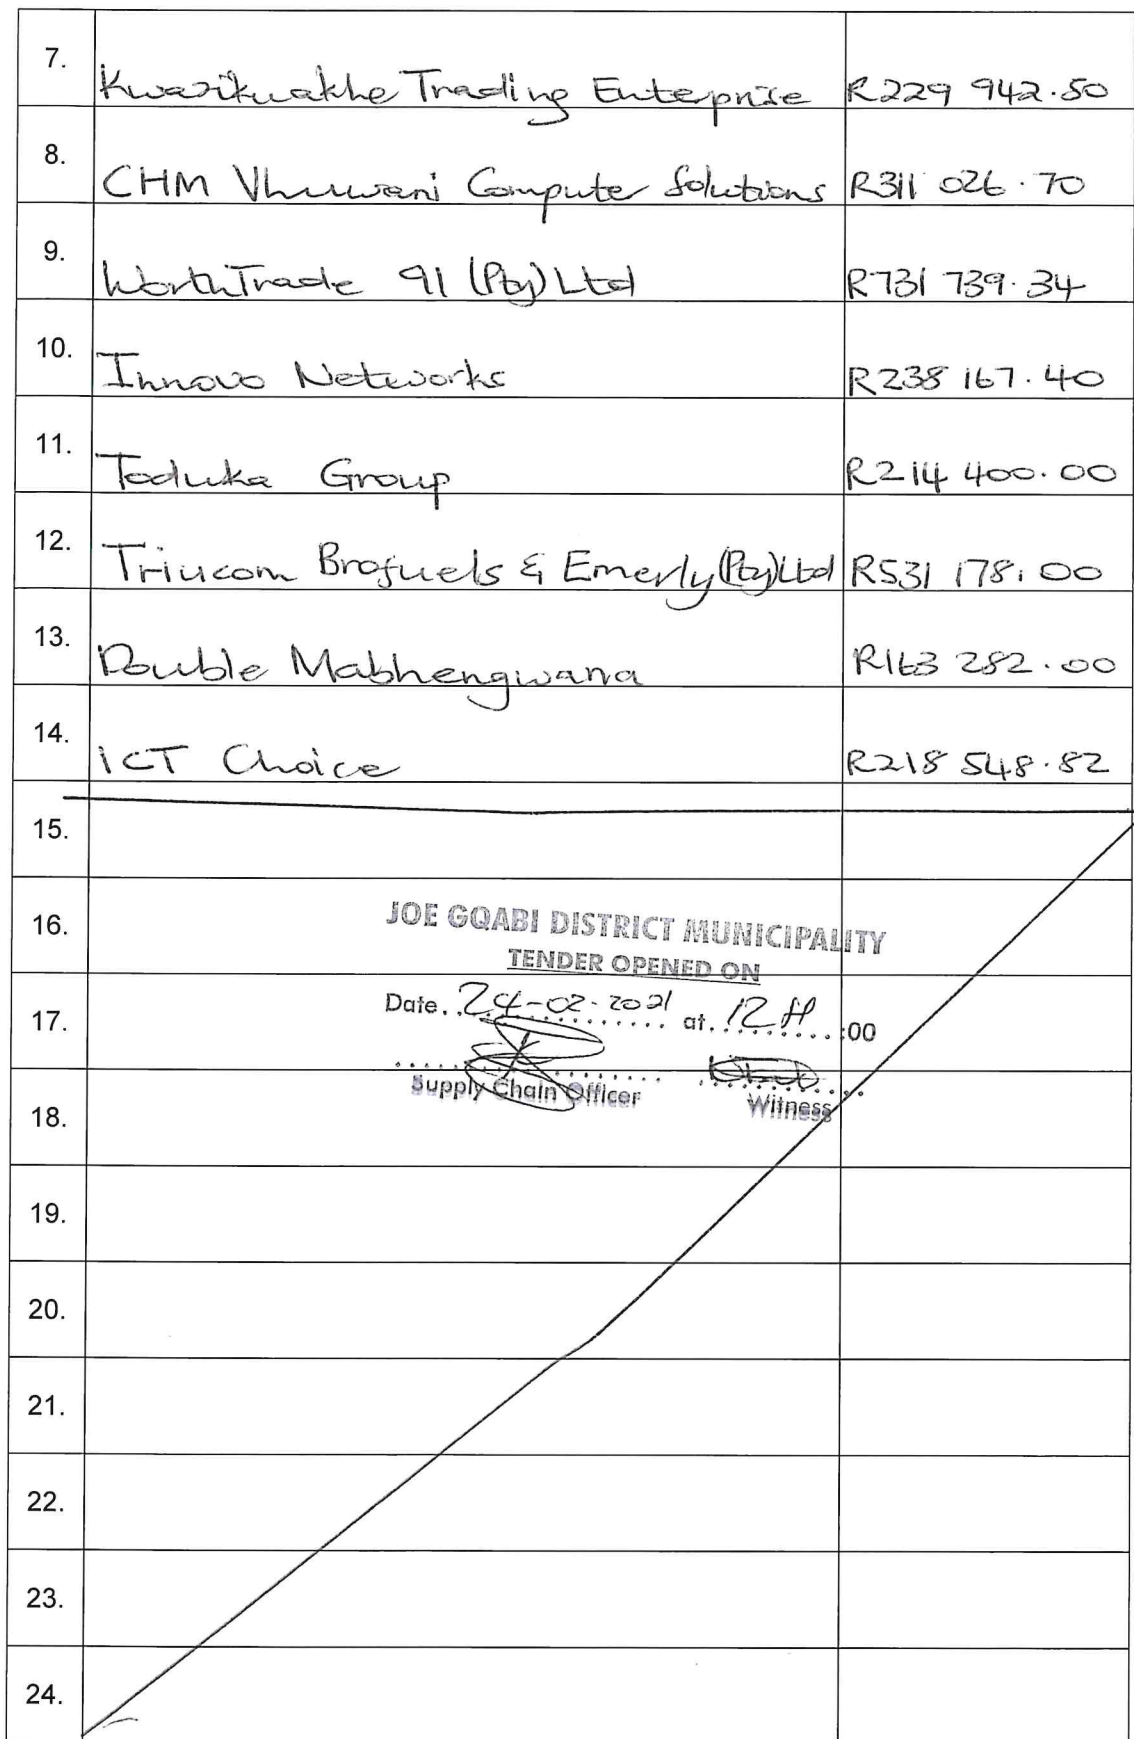 7. Kwazikwakhe Trading Enterprise R229 942.50
8. CHM Vhuwani Compute Solutions R311 026.70
9. WorthTrade 91 (Pty) Ltd R731 739.34
10. Innovo Networks R238 167.40
11. Toduka Group R214 400.00
12. Triucom Brofuels & Emerly (Pty) Ltd R531 178.00
13. Double Mabhengwana R163 282.00
14. ICT Choice R218 548.82
15.
16.
JOE GQABI DISTRICT MUNICIPALITY
TENDER OPENED ON
17.
Date. 24-02-2021 at. 12H :00
Supply Chain Officer Witness
18.
19.
20.
21.
22.
23.
24.